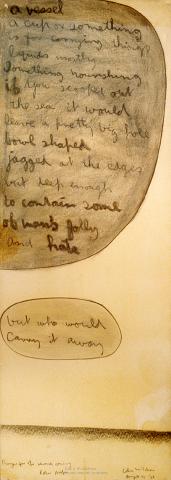 a vessel
a cup or something
is for carrying things
liquids mostly
something nourishing
if you scooped out
the sea it would
leave a pretty big hole
bowl shaped
jagged at the edges
but deep enough
to contain some
of man's folly
and hate
but who would
carry it away
the second coming